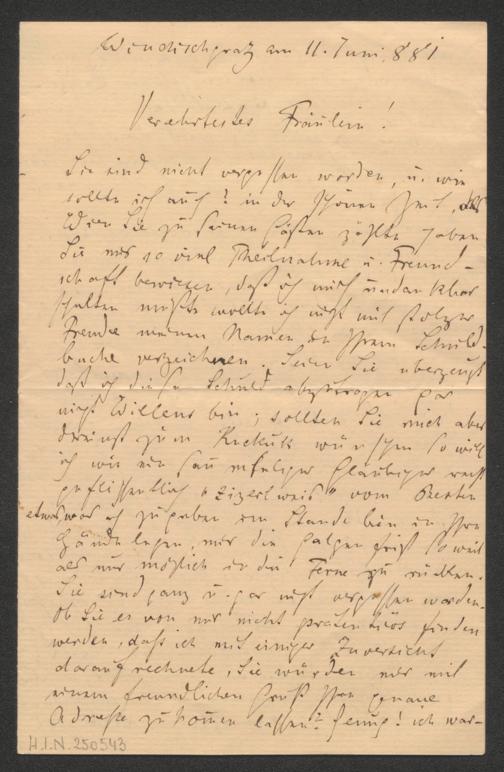 Windischgraz am 11. Juni 881
Verehrtestes Fräulein!
Sie sind nicht vergessen worden, u. wie
sollte ich auch? in der schönen Zeit, als
Wien Sie zu seinen Gästen zählte haben
Sie mir so viel Theilnahme u. Freund-
schaft bewiesen, daß ich mich undankbar
schalten müßte wollte ich nicht mit stolzer
Freude meinen Namen in Ihrem Schuld-
buche verzeichnen. Seien Sie überzeugt
daß ich diese Schuld abzutragen gar
nicht Willens bin; sollten Sie mich aber
dereinst zum Kuckuk wünschen so will
ich wie ein saumseliger Gläubiger recht
geflissentlich "zizerlweis" vom Besten
etwas was ich zu geben im Stande bin in Ihre
Hände legen, mir die Galgenfrist so weit
als nur möglich in die Ferne zu rücken.
Sie sind ganz u. gar nicht vergessen worden.
Ob Sie es von mir nicht prätentiös finden
werden, daß ich mit einiger Zuversicht
darauf rechnete, Sie würden mir mit
einem freundlichen Gruß Ihre genaue
Adresse zukommen lassen? Genug! ich war-
H.I.N. 250543